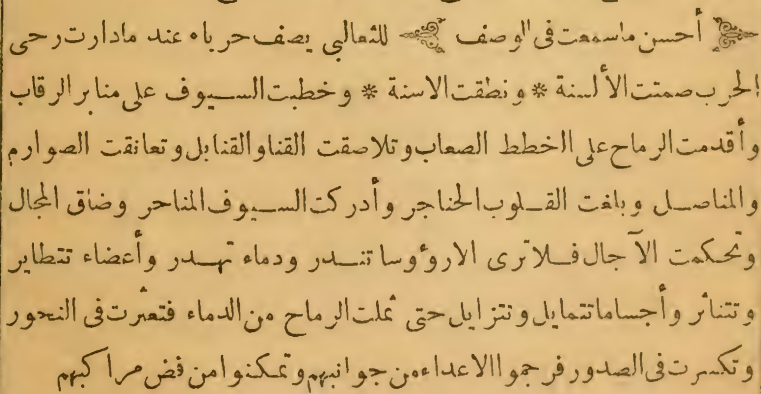 أحسن ماسمعت فى الوصف للثعالبي يصف حرباء عند مادارت رحى
الحرب صمتت الألسنة * ونطقت الاسنة * وخطبت السيوف على منابر الرقاب
وأقدمت الرماح على الخطط الصعاب وتلاصقت القنا والقنابل وتعانقت الصوارم
والمناصل وبلغت القلوب الحناجر وأدركت السيوف المناحر وضاق المجال
وتحكمت الآجال فلا ترى الا رؤوسا تندر ودماء تهدر وأعضاء تتطاير
وتتناثر وأجساما تتمايل وتتزايل حتى ثملت الرماح من الدماء فتعثرت فى النحور
وتكسرت فى الصدور فرجموا الاعداء من جوانبهم وتمكنوا من فض مراكبهم